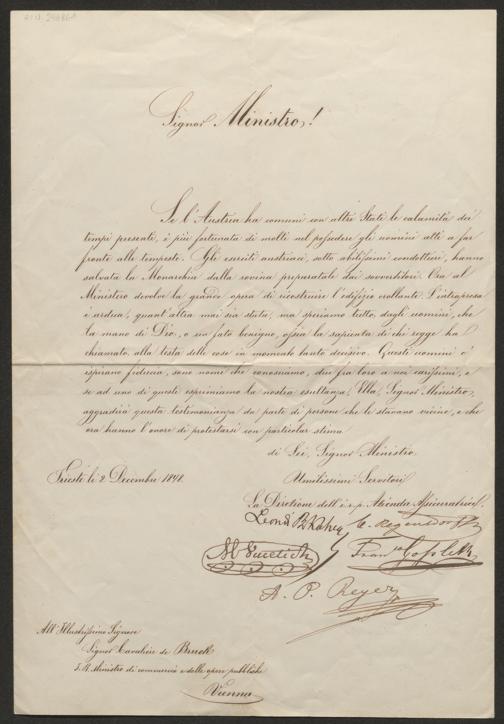 Signor Ministro!
Se l'Austria ha comuni con altri Stati le calamità dei
tempi presenti, è più fortunata di molti nel possedere gli uomini atti a far
fronte alle tempeste. Gli eserciti austriaci, sotto abilissimi condottieri, hanno
salvata la Monarchia dalla rovina preparatale dai sovvertitori. Ora al
Ministero devolve la grande opera di ricostruire l'edifizio crollante. L'intrapresa
è ardua, quant'altra mai sia stata, ma speriamo tutto dagli uomini, che
la mano di Dio, o un fato benigno, ossia la sapienza di chi regge ha
chiamato alla testa delle cose in momento tanto decisivo. Questi uomini c'
ispirano fiducia, sono nomi che conosciamo, due fra loro a noi carissimi, e
se ad uno di questi esprimiamo la nostra esultanza, Ella, Signor Ministro,
aggradirà questa testimonianza da parte di persone che le stavano vicine, e che
ora hanno l'onore di protestarsi con particolar stima
di Lei, Signor Ministro
Umilissimi Servitori
Trieste li 2 Decembre 1848.
La Direzione dell' i. r. p. Azienda Assicuratrice.
A. P. Reyer
All' Illustrissimo Signore
Signor Cavaliere de Bruck
I. R. Ministro di commercio e delle opere pubbliche
Vienna